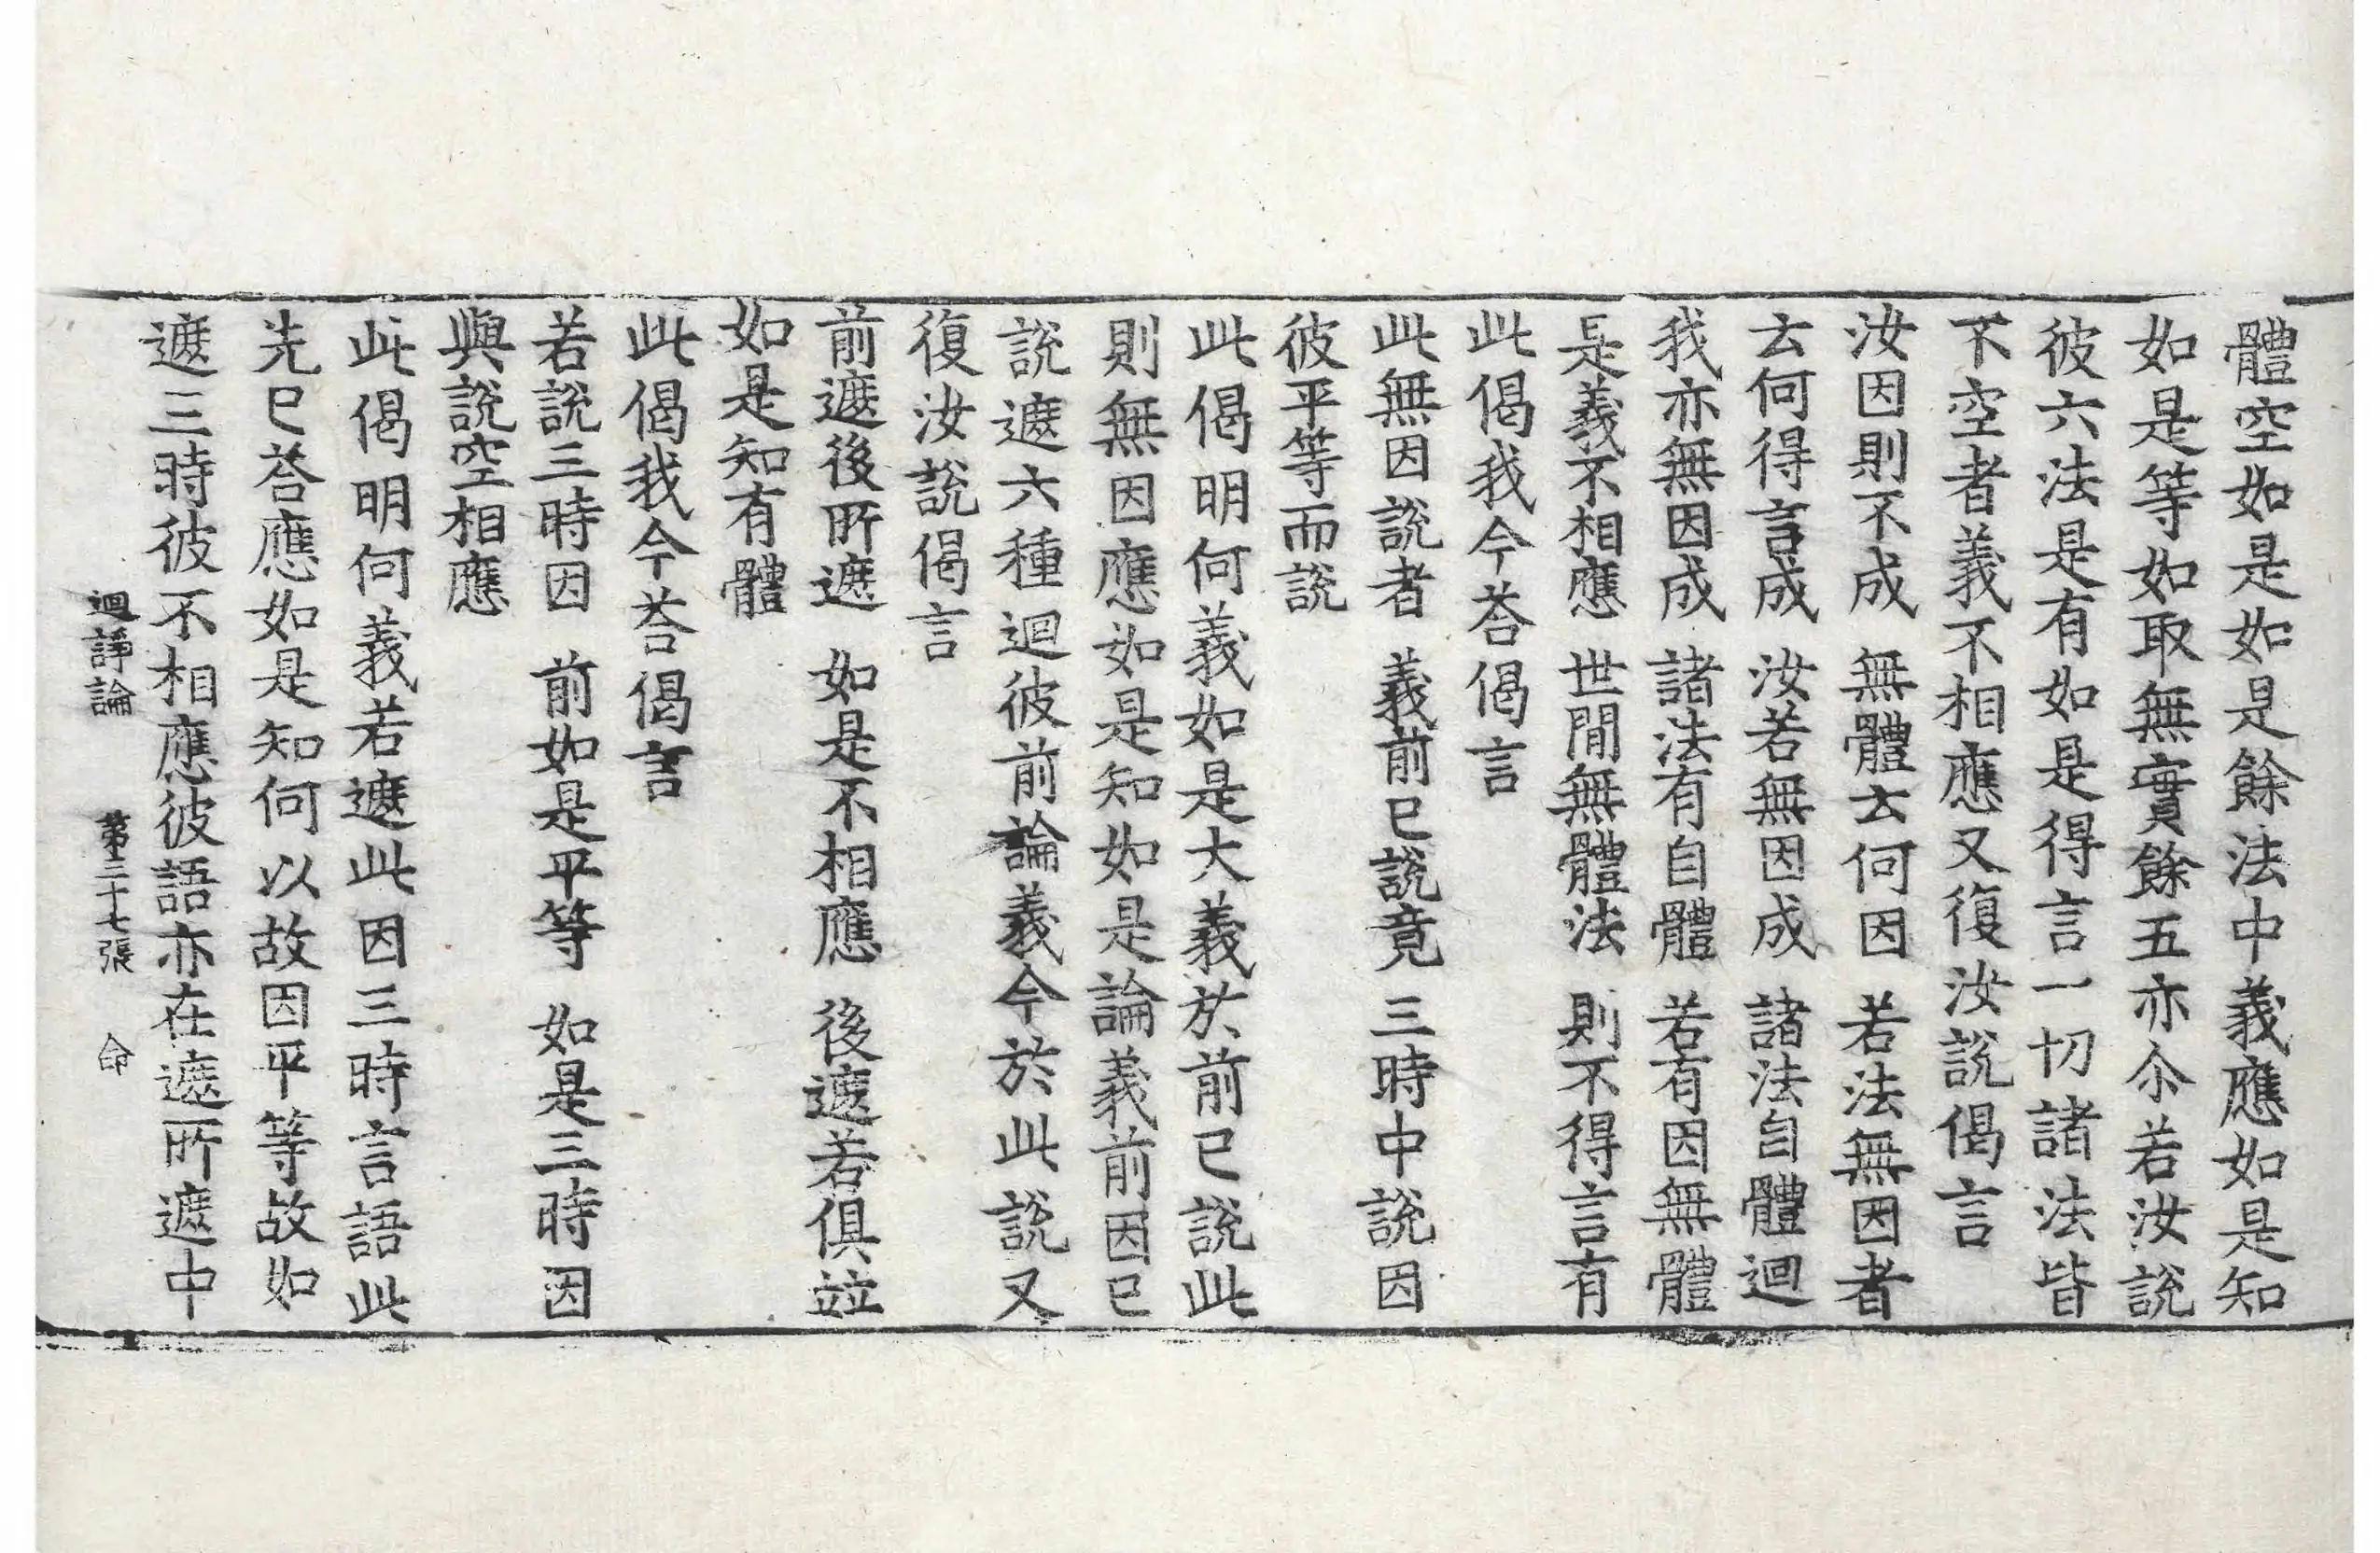 體空如是如是餘法中義應如是知
如是等如取無實餘五亦尒若汝說
彼六法是有如是得言一切諸法皆
不空者義不相應又復汝說偈言
汝因則不成　無體云何因　若法無因者
云何得言成　汝若無因成　諸法自體迴
我亦無因成　諸法有自體　若有因無體
是義不相應　世間無體法　則不得言有
此偈我今荅偈言
此無因說者　義前已說竟　三時中說因
彼平等而說
此偈明何義如是大義於前已說此
則無因應如是知如是論義前因已
說遮六種迴彼前論義今於此說又
復汝說偈言
前遮後所遮　如是不相應　後遮若俱並
如是知有體
此偈我今荅偈言
若說三時因　前如是平等　如是三時因
與說空相應
此偈明何義若遮此因三時言語此
先已荅應如是知何以故因平等故如
遮三時彼不相應彼語亦在遮所遮中
迴諍論　第二十七張　命